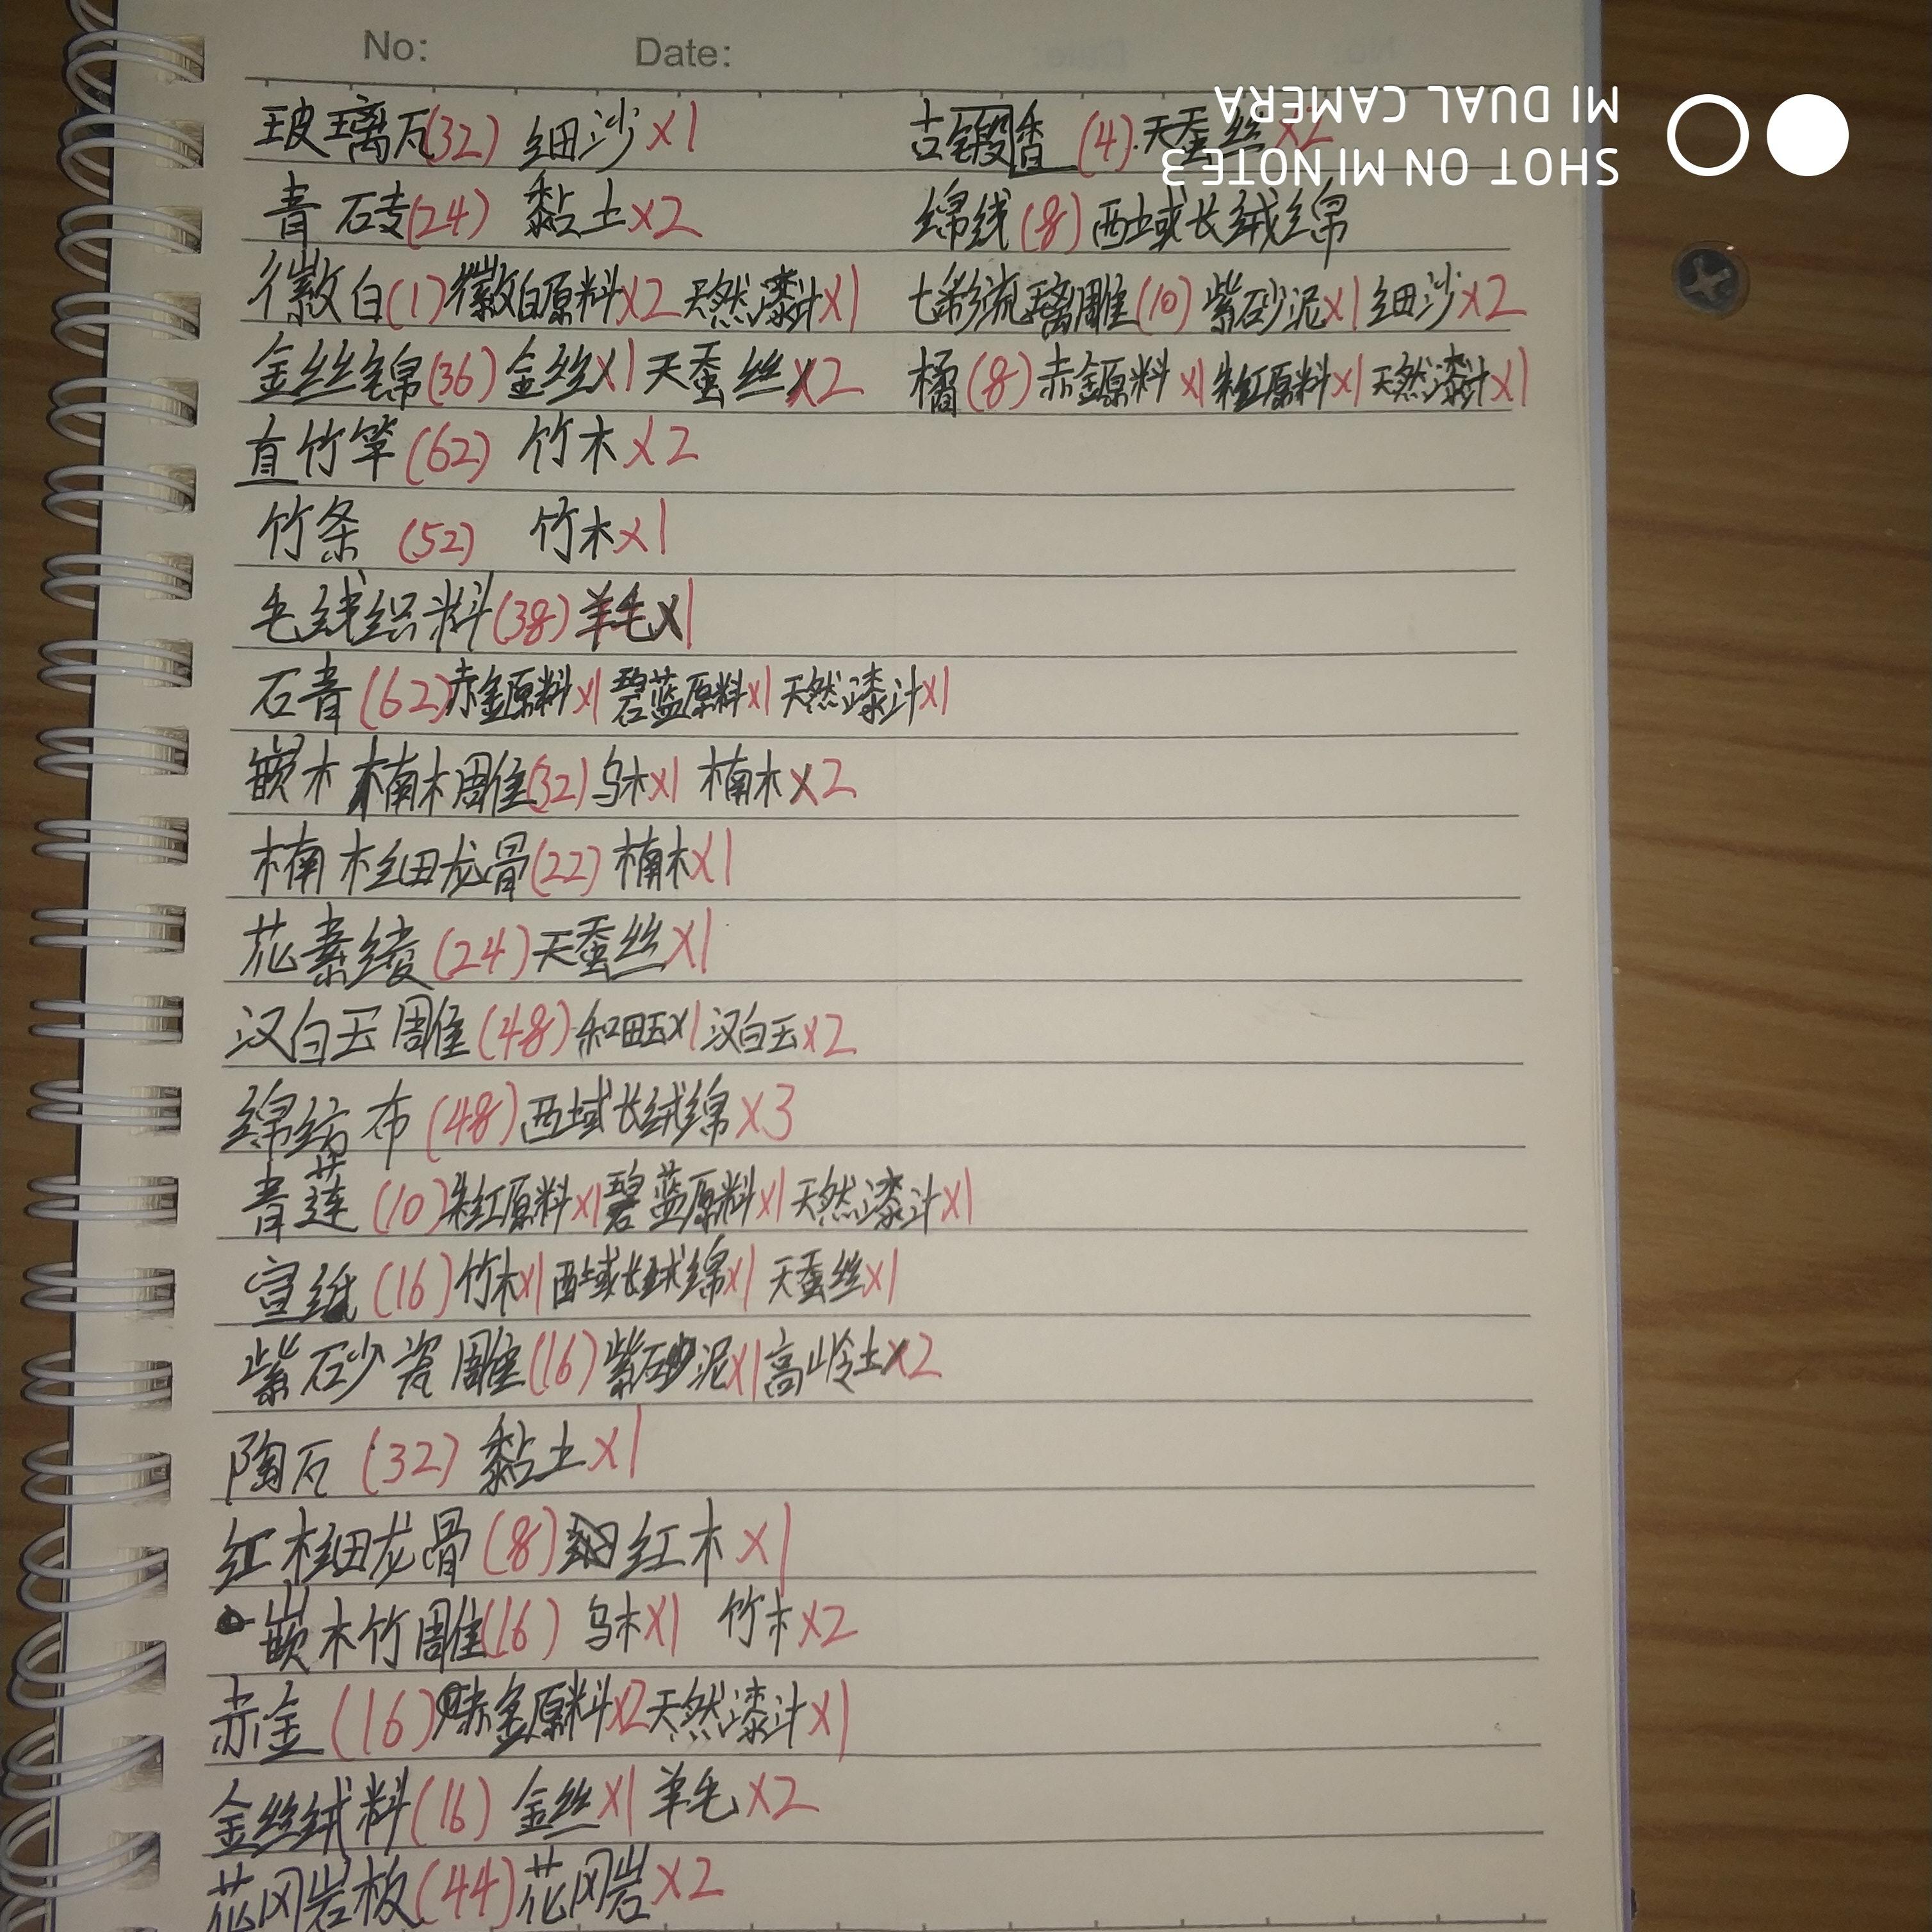 No: Date:
玻璃瓦(32) 细沙x1
青砖(24) 黏土x2
徽白(1)徽白原料x2天然漆汁x1
金丝锦(36)金丝x1天蚕丝x2
直竹竿(62) 竹木x2
竹条 (52) 竹木x1
毛绒织料(38)羊毛x1
石青(62)赤金原料x1碧蓝原料x1天然漆汁x1
嵌木楠木雕(32)乌木x1 楠木x2
楠木细龙骨(22)楠木x1
花素绫(24)天蚕丝x1
汉白玉雕(48)和田玉x1汉白玉x2
绵纺布(48)西域长绒绵x3
青莲(10)朱红原料x1碧蓝原料x1天然漆汁x1
宣纸(16)竹木x1西域长绒绵x1天蚕丝x1
紫砂瓷雕(16)紫砂泥x1高岭土x2
陶瓦(32)黏土x1
红木细龙骨(8)红木x1
嵌木竹雕(16) 乌木x1 竹木x2
赤金(16)赤金原料x2天然漆汁x1
金丝绒料(16)金丝x1羊毛x2
花冈岩板(44)花冈岩x2
古锻香(4).天蚕丝x2
绵线(8)西域长绒绵
七彩流璃雕(10)紫砂泥x1细沙x2
橘(8)赤金原料x1朱红原料x1天然漆汁x1
SHOT ON MI NOTE3
MI DUAL CAMERA